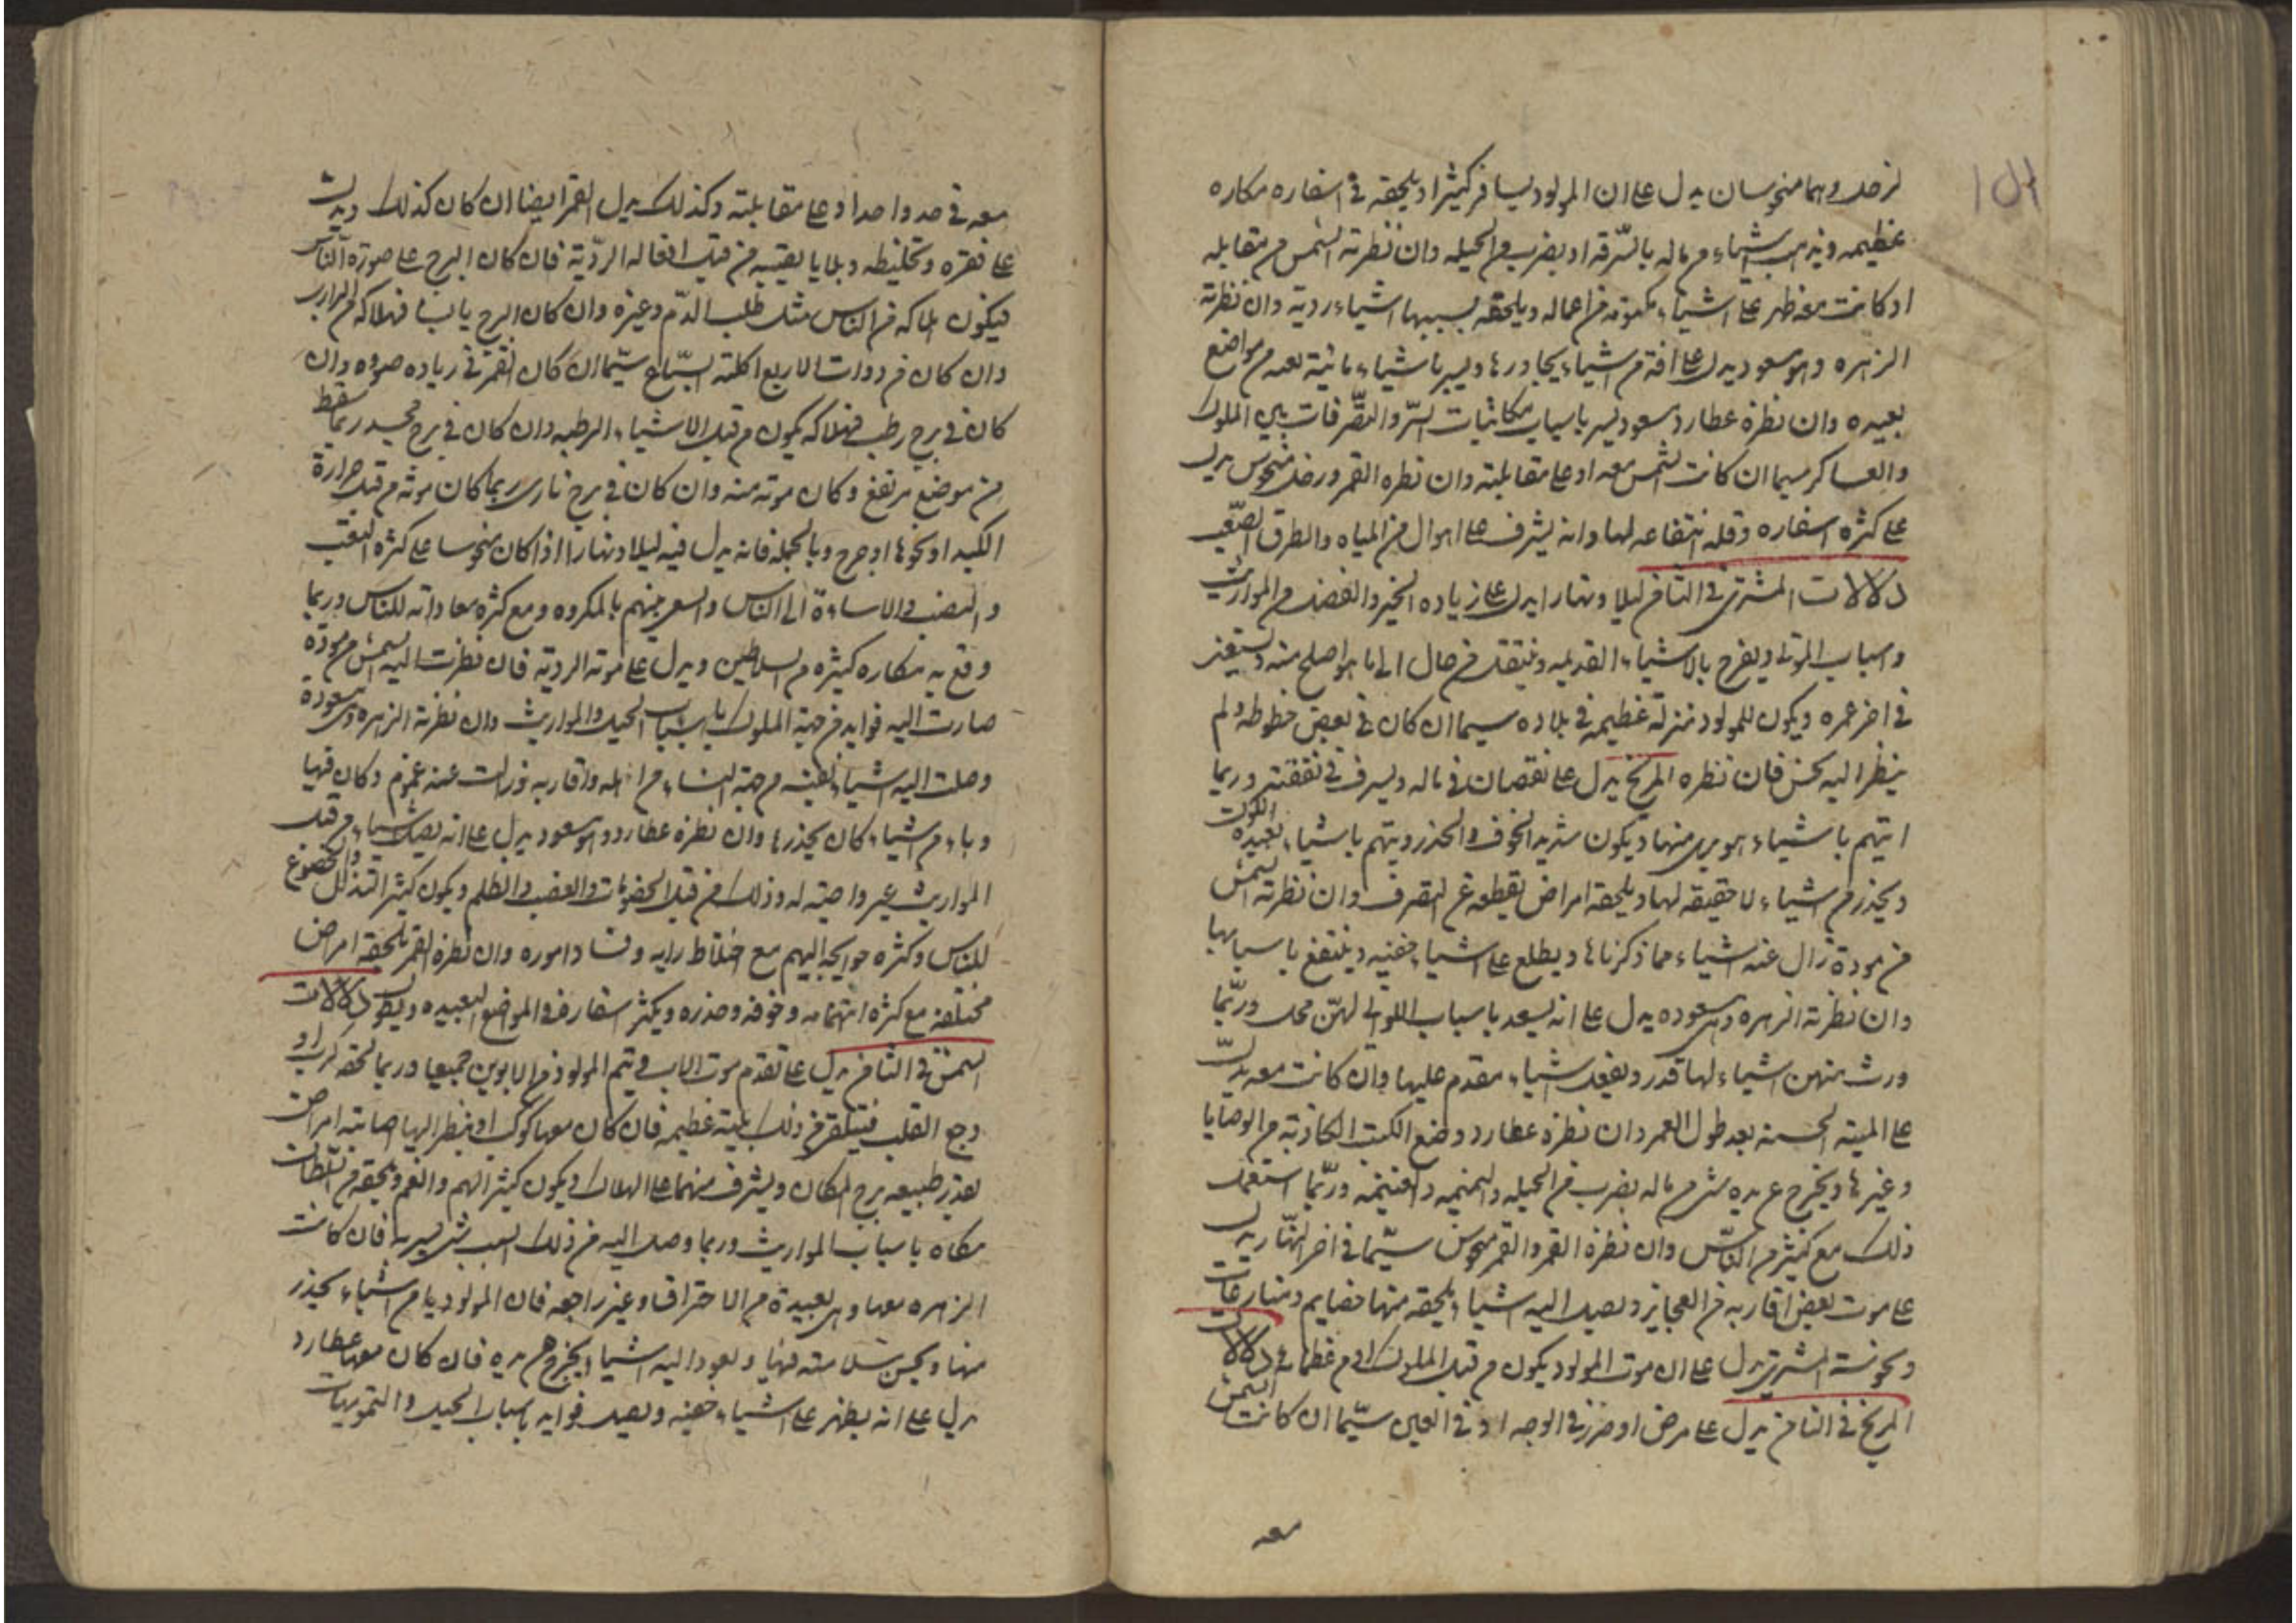 لزحل وهما منحوسان يدل على ان المولود يسافر كثيرا ويلحقه في اسفاره مكاره
عظيمه ويذهب اشياء من ماله بالسرقه او بضرب من الحيله وان نظرته الشمس من مقابله
او كانت معه ظهر على اشياء مكتومه من اعماله ويلحقه بسببها اشياء ردية وان نظرته
الزهره وهو مسعود يدل على افة من اشياء يجاورها ويسر باشياء ماتية لعمه من مواضع
بعيده وان نظره عطارد مسعود يسر باسباب مكاتبات السر والتصرفات بين الملوك
والعساكر سيما ان كانت الشمس معه او على مقابلته وان نظره القمر وزحل منحوس يدل
على كثره اسفاره وقله انتفاعه لها وانه يشرف على اهوال من المياه والطرق الصعب
دلالات المشتري في الثامن ليلا ونهارا يدل على زياده الخير والفضل من المواريث
واسباب الموتى ويفرح بالاشياء القديمه وينتقل من حال الى ما هو اصلح منه ويستغنى
في اخر عمره ويكون للمولود منزلة عظيمه في بلاده سيما ان كان في بعض حظوظه ولم
ينظر اليه نحس فان نظره المريخ يدل على نقصان في ماله ويسرف في نفقته وربما
اتهم باشياء هو بري منها ويكون شديد الخوف والحذر ويتهم باشياء بعيدة الكون
ويحذر من اشياء لا حقيقه لها ويلحقه امراض يقطعه عن التصرف وان نظرته الشمس
من مودة زال عنه اشياء مما ذكرناها ويطلع على اشياء خفيه وينتفع باسبابها
وان نظرته الزهره وهى مسعوده يدل على انه يسعد باسباب اللواتى لهن محل وربما
ورث منهن اشياء لها قدر ويفعل اشياء مقدم عليها وان كانت معه يدل
على الميته الحسنه بعد طول العمر وان نظره عطارد وضع الكتب الكاذبه من الوصايا
وغيرها ويخرج عن يده شى من ماله بضرب من الحيله والنميمه والغنيمه وربما استعمل
ذلك مع كثير من الناس وان نظره القمر والقمر منحوس سيما في اخر النهار يدل
على موت بعض اقاربه من العجايز ويصل اليه اشياء يلحقه منها خصايم ومنازعات
ونحوسة المشتري يدل على ان موت المولود يكون من قبل الملوك او من عظمائه دلالات
المريخ في الثامن يدل على مرض او ضرر في الوجه او في العين سيما ان كانت الشمس
معه
معه في حد واحد او على مقابلته وكذلك يدل القمر ايضا ان كان كذلك ويدل
على فقره وتخليطه وبلايا يصيبه من قبل افعاله الردية فان كان البرج على صورة الناس
فيكون هلاكه من الناس مثل طلب الدم وغيره وان كان البرج يابسا فهلاكه من
وان كان من ذوات الاربع اكلته السباع سيما ان كان القمر في زياده ضوه وان
كان في برج رطب فهلاكه يكون من قبل الاشياء الرطبه وان كان في برج ربما سقط
من موضع مرتفع وكان موته منه وان كان في برج ناري ربما كان موته من قبل حرارة
الكبد او نحوها او جرح وبالجمله فانه يدل فيه ليلا ونهارا اذا كان منحوسا على كثره التعب
والنصب والاساءة الى الناس والسعى بينهم بالمكروه ومع كثره معاداته للناس وربما
وقع به مكاره كثيره من السلاطين ويدل على موته الردية فان نظرت اليه الشمس من مودة
صارت اليه فوايد من جهة الملوك باسباب الحيل والمواريث وان نظرته الزهره وهى مسعودة
وصلت اليه اشياء نفيسه من جهة النساء من اهله واقاربه وزالت عنه غموم وكان فيها
وباء من اشياء كان يحذرها وان نظره عطارد وهو مسعود يدل على انه يصل اشياء من قبل
المواريث غير واجبه له وذلك من قبل الخصومات والغضب والظلم ويكون كثير التذلل والخضوع
للناس وكثره حوايجه اليهم مع اختلاط رايه وفساد اموره وان نظره القمر يلحقه امراض
مختلفه مع كثره اتهامه وخوفه وحذره ويكثر اسفاره في المواضع البعيده ويطول دلالات
الشمس في الثامن يدل على تقدم موت الاب ويتم المولود من الابوين جميعا وربما لحقه كرب او
وجع القلب فيلقى من ذلك بلية عظيمه فان كان معها كوكب او ينظر اليها اصابته امراض
بقدر طبيعه برج المكان ويشرف منهما على الهلاك ويكون كثير الهم والغم ويلحقه من السلطان
مكاه باسباب المواريث وربما وصل اليه من ذلك السبب شى يسير فان كانت
الزهره معها وهى بعيدة من الاحتراق وغير راجعه فان المولود يامن اشياء يحذر
منها ويحسن سلامته فيها ويعود اليه اشياء يخرج من يده فان كان معها عطارد
يدل على انه يظهر على اشياء خفيه ويصل فوايد باسباب الحيل والتمويهات